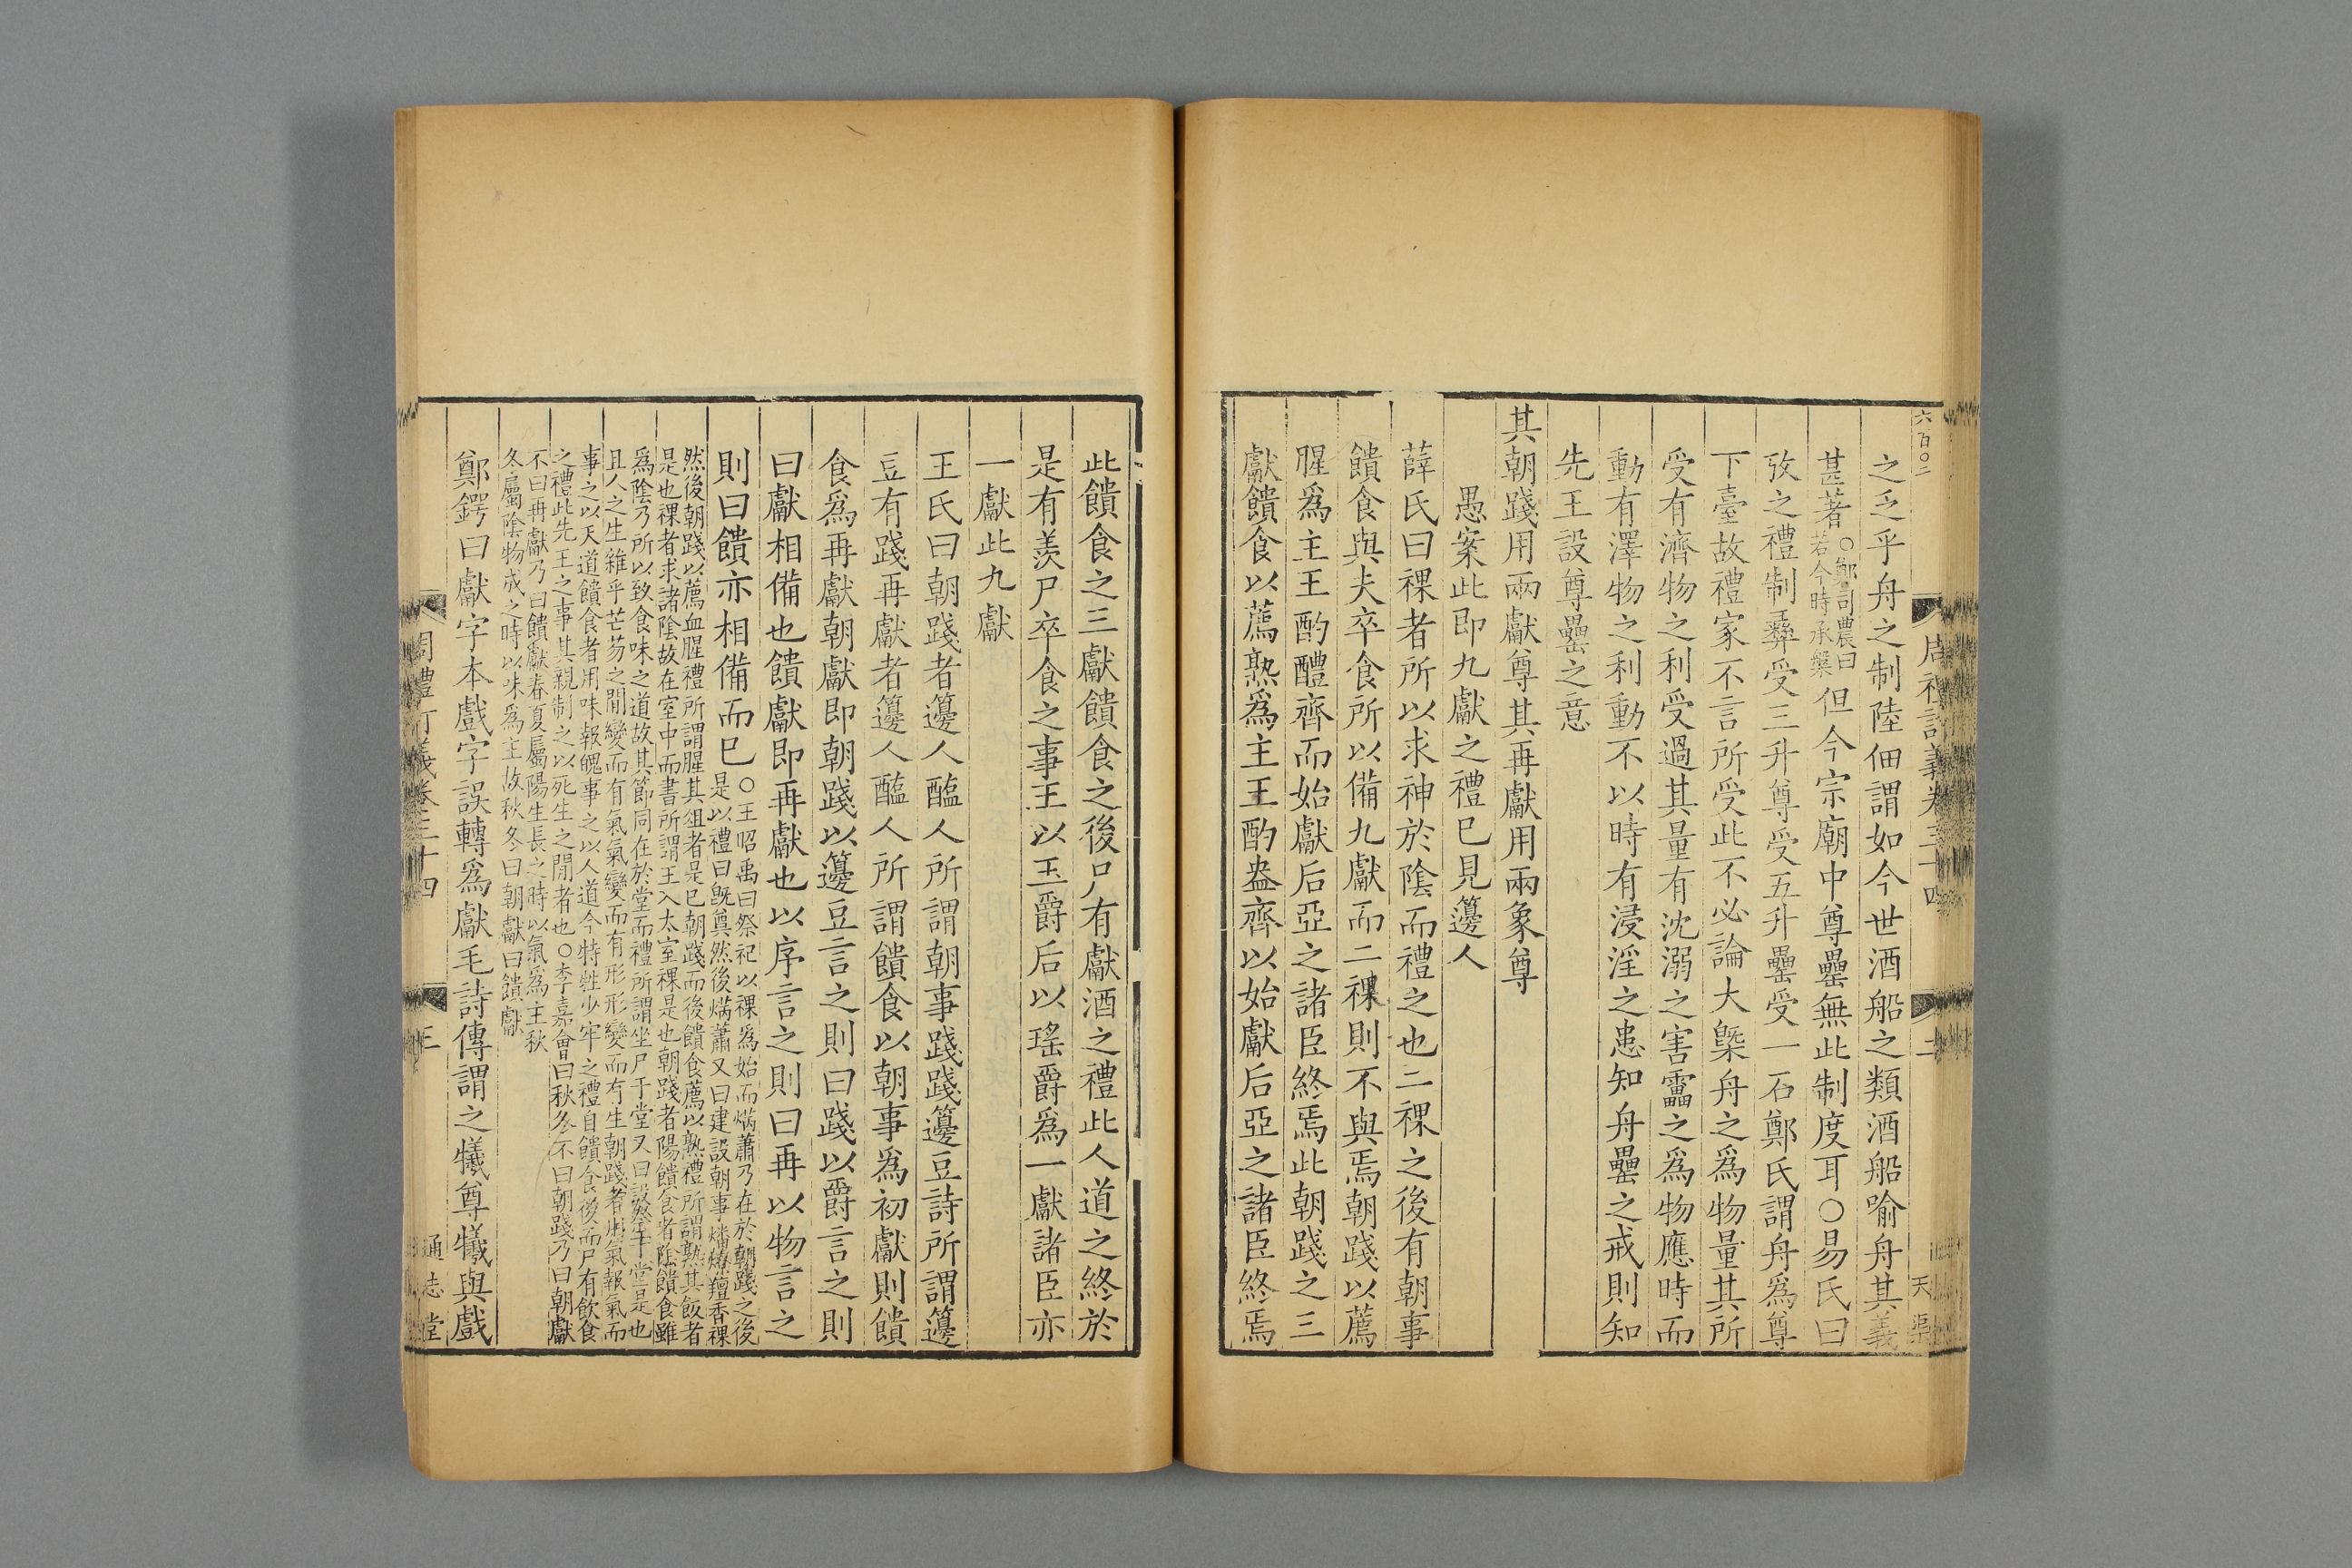 六百〇二
之乏乎舟之制陸佃謂如今世酒船之類酒船喻舟其義
甚著〇鄭司農曰若今時承槃但今宗廟中尊罍無此制度耳〇易氏曰
攷之禮制彞受三升尊受五升罍受一石鄭氏謂舟爲尊
下臺故禮家不言所受此不必論大槩舟之爲物量其所
受有濟物之利受過其量有沈溺之害靁之爲物應時而
動有澤物之利動不以時有浸淫之患知舟罍之戒則知
先王設尊罍之意
其朝踐用兩獻尊其再獻用兩象尊
愚案此即九獻之禮已見籩人
薛氏曰祼者所以求神於陰而禮之也二祼之後有朝事
饋食與夫卒食所以備九獻而二祼則不與焉朝踐以薦
腥爲主王酌醴齊而始獻后亞之諸臣終焉此朝踐之三
獻饋食以薦熟爲主王酌盎齊以始獻后亞之諸臣終焉
此饋食之三獻饋食之後尸有獻酒之禮此人道之終於
是有羨尸卒食之事王以玉爵后以瑤爵爲一獻諸臣亦
一獻此九獻
王氏曰朝踐者籩人醢人所謂朝事踐踐籩豆詩所謂籩
豆有踐再獻者籩人醢人所謂饋食以朝事爲初獻則饋
食爲再獻朝獻即朝踐以籩豆言之則曰踐以爵言之則
曰獻相備也饋獻即再獻也以序言之則曰再以物言之
則曰饋亦相備而已〇王昭禹曰祭祀以祼爲始而焫蕭乃在於朝踐之後
是以禮曰旣奠然後焫蕭又曰建設朝事燔燎羶香祼
然後朝踐以薦血腥禮所謂腥其俎者是已朝踐而後饋食薦以熟禮所謂熟其殽者
是也祼者求諸陰故在室中而書所謂王入太室祼是也朝踐者陽饋食者陰饋食雖
爲陰乃所以致食味之道故其節同在於堂而禮所謂坐尸于堂又曰設祭于堂是也
且人之生雜乎芒芴之閒變而有氣氣變而有形形變而有生朝踐者用氣報氣而
事之以天道饋食者用味報魄事之以人道今特牲少牢之禮自饋食後而尸有飲食
之禮此先王之事其親制之以死生之閒者也〇李嘉會曰秋冬不曰朝踐乃曰朝獻
不曰再獻乃曰饋獻春夏屬陽生長之時以氣爲主秋
冬屬陰物成之時以味爲主故秋冬曰朝獻曰饋獻
鄭鍔曰獻字本戲字誤轉爲獻毛詩傳謂之犧尊犧與戲
周禮訂義卷三十四
三
通志堂